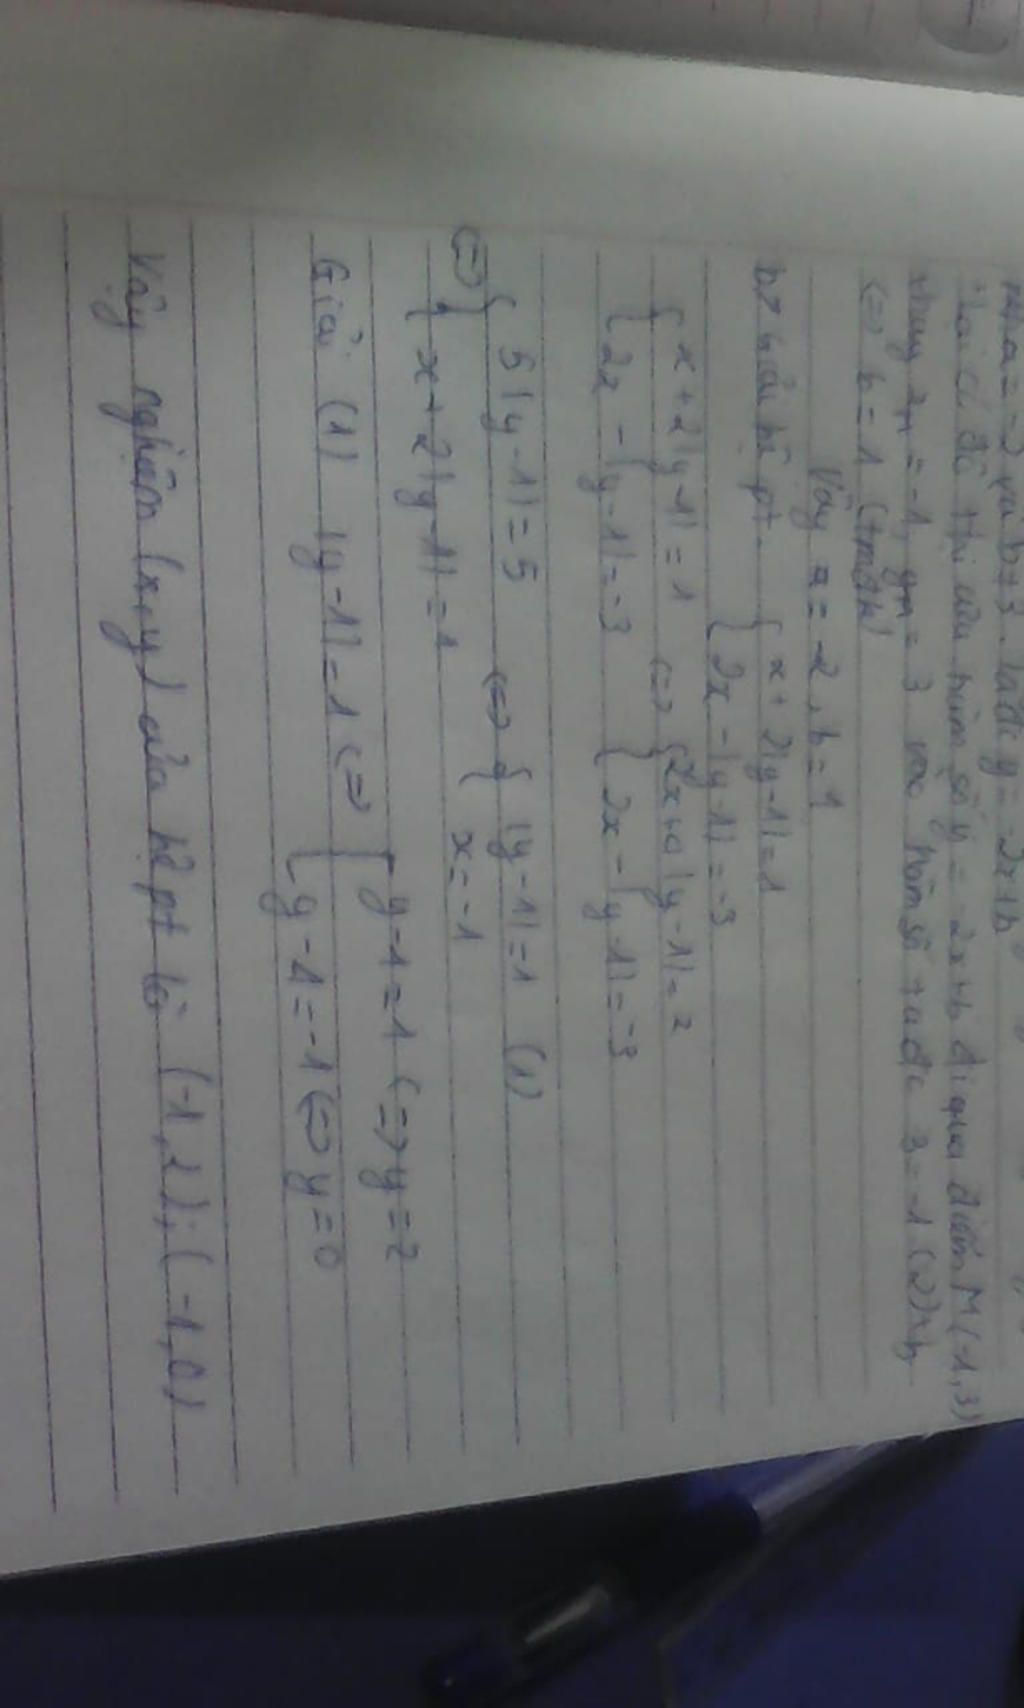 và b ≠ 3. Ta đc y = -2x+b
Vì đồ thị của hàm số y = -2x+b đi qua điểm M(-1,3)
thay xM = -1, yM = 3 vào hàm số ta đc 3 = -1(-2)+b
<=> b = 1 (tmđk)
Vậy a = -2, b = 1
b> Giải hệ pt. { x + 2|y-1| = 1
{ 2x - |y-1| = -3
{ x + 2|y-1| = 1 <=> { 2x+4|y-1| = 2
{ 2x - |y-1| = -3 { 2x - |y-1| = -3
<=> { 5|y-1| = 5 <=> { |y-1| = 1 (1)
{ x + 2|y-1| = 1 x = -1
Giải (1) |y-1| = 1 <=> [ y-1 = 1 <=> y = 2
[ y-1 = -1 <=> y = 0
Vậy nghiệm (x,y) của hệ pt là (-1,2); (-1,0)